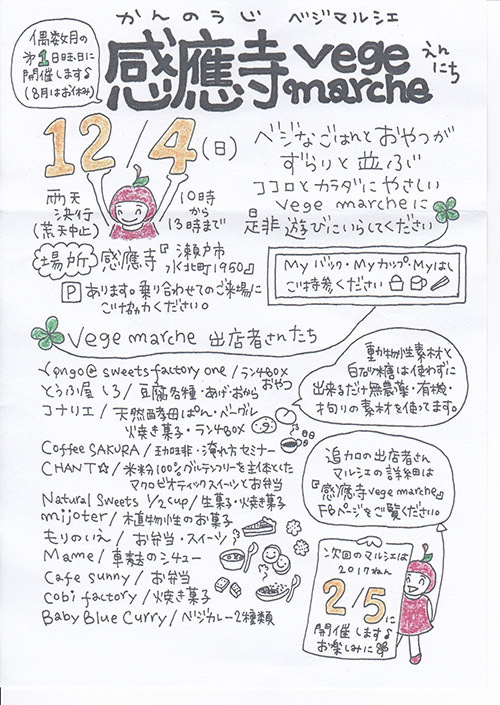 かんのうじ ベジマルシェ
偶数月の
第1日曜日に
開催します♪
(8月はお休み)
感應寺 vege marche
えんにち
12/4(日)
雨天
決行
(荒天中止)
10時
から
13時まで
ベジなごはんとおやつが
ずらりと並ぶ
ココロとカラダにやさしい
vege marcheに
是非遊びにいらしてください
場所 感應寺『瀬戸市
水北町1950』
P あります。乗り合わせてのご来場に
ご協力ください。
Myバック・Myカップ・Myはし
ご持参ください
vege marche 出店者さんたち
動物性素材と
白砂糖は使わずに
出来るだけ無農薬・有機・
才旬りの素材を使ってます。
yongo@ sweets factory one/ランチBOX
おやつ
とうふ屋 しろ/豆腐各種・あげ・おから
コナリエ/天然酵母ぱん・ベーグル
焼き菓子・ランチBOX
Coffee SAKURA/珈琲・淹れ方セミナー
CHANT☆/米粉100%グルテンフリーを主体といた
マクロビオティックスイーツとお弁当
Natural Sweets 1/2cup/生菓子・焼き菓子
mijoter/植物性のお菓子
もりのいえ/お弁当・スイーツ
Mame/車麩のシチュー
Cafe sunny/お弁当
cobi factory/焼き菓子
Baby Blue Curry/ベジカレー2種類
追加の出店者さん
マルシェの詳細は
『感應寺vege marche』
FBページをご覧ください。
次回のマルシェは
2017ねん
2/5に
開催します♪
お楽しみに